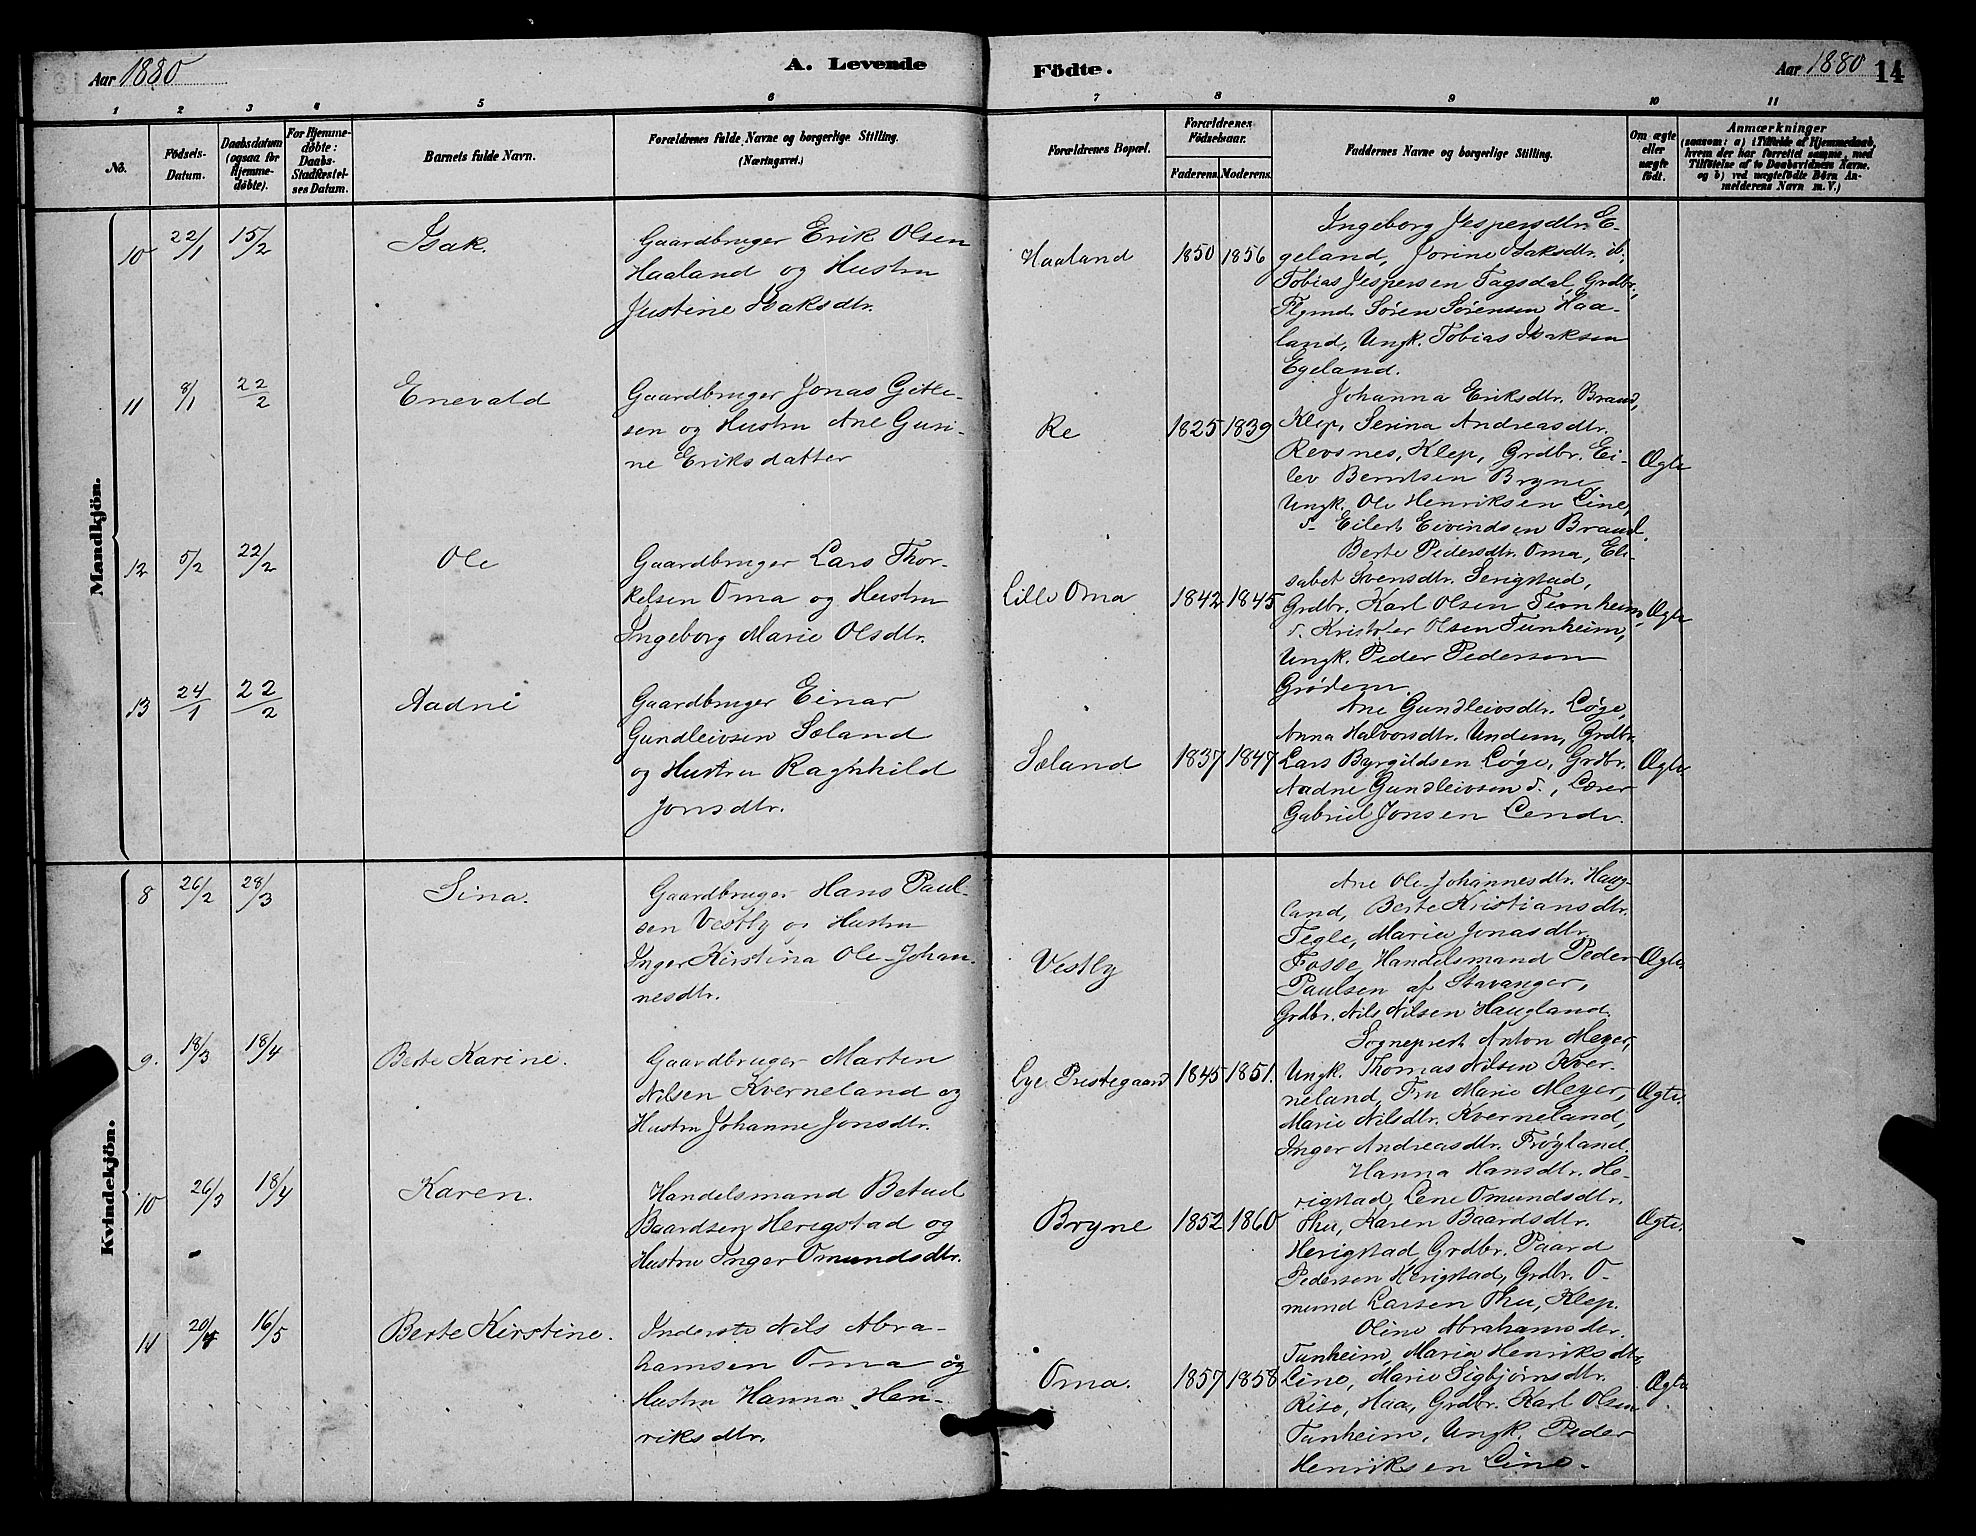 Aar 1880
A. Levende
Födte.
Aar 1880 14
1 2 3 4 5 6 7 8 9 10 11
No.
Födsels-
Datum.
Daabsdatum
(ogsaa for
Hjemme-
døbte).
For Hjemme-
døbte:
Daabs-
Stadfæstel-
ses Datum.
Barnets fulde Navn.
Forældrenes fulde Navne og borgerlige Stilling.
(Næringsvei.)
Forældrenes Bopæl.
Forældrenes
Födselsaar.
Faderens. Moderens.
Faddernes Navne og borgerlige Stilling.
Om ægte
eller
uægte
födt.
Anmærkninger
(saasom: a) i Tilfælde af Hjemmedaab,
hvem der har forrettet samme, med
Tilföielse af to Daabsvidners Navne.
og b) ved uægtefödte Börn An-
melderens Navn m.V.)
Mandkjön.
10 22/1 15/2 Isak.
Gaardbruger Erik Olsen
Haaland og Hustru
Justine Isaksdtr.
Haaland 1850 1856
Ingeborg Jespersdtr. E-
geland, Jorine Isaksdtr. d.,
Tobias Jespersen Tagsdal, Grdbr.,
Flgmd. Søren Sørensen Haa-
land, Ungk. Tobias Isaksen
Egeland.
11 8/1 22/2 Enevald
Gaardbruger Jonas Gitle-
sen og Hustru Ane Guri-
ne Eriksdatter
Re 1825 1839
Johanna Eriksdtr. Braud,
Klep, Serina Andreasdtr.
Revsnes, Klep, Grdbr. Ei-
lev Berntsen Bryne
Ungk. Ole Henriksen Line,
d. Eilert Eivindsen Braud.
Ægte
12 5/2 22/2 Ole
Gaardbruger Lars Thor-
kelsen Oma og Hustru
Ingeborg Marie Olsdtr.
Lille Oma 1842 1845
Berte Pedersdtr. Oma, Eli-
sabet Svensdtr. Serigstad,
Grdbr. Karl Olsen Tunheim,
d. Kristofer Olsen Tunheim,
Ungk. Peder Pedersen
Grödem.
Ægte
13 24/1 22/2 Aadne
Gaardbruger Einar
Gundleivsen Sæland
og Hustru Ragnhild
Jonsdtr.
Sæland 1837 1847
Ane Gundleivsdtr. Løge,
Anna Halvorsdtr. Undem, Grdbr.
Lars Byrgildsen Løge, Grdbr.
Aadne Gundleivsen d., Lærer
Gabriel Jonsen Lende.
Ægte
Kvindekjön.
8 26/2 28/3 Sina.
Gaardbruger Hans Paul-
sen Vestly og Hustru
Inger Kirstina Ole-Johan-
nesdtr.
Vestly
Ane Ole-Johannesdtr. Haug-
land, Berte Kristiansdtr.
Tegle, Maria Jonasdtr.
Fosse, Handelsmand Peder
Paulsen af Stavanger,
Grdbr. Nils Nilsen Haugland.
Ægte.
9. 18/3 18/4 Berte Karine.
Gaardbruger Marten
Nilsen Kverneland og
Hustru Johanne Jonsdtr.
Lye Prestegaard 1845 1851.
Sogneprest Anton Meyer,
Ungk. Thomas Nilsen Kver-
neland, Fru Marie Meyer,
Marie Nilsdtr. Kverneland,
Inger Andreasdtr. Frøyland.
Ægte.
10 26/3 18/4 Karen.
Handelsmand Betuel
Baardsen Herigstad og
Hustru Inger Omundsdtr.
Bryne 1852 1860
Hanna Hansdtr. He-
rigstad, Lene Omundsdtr.
Thu, Karen Baardsdtr.
Herigstad, Grdbr. Paard
Pedersen Herigstad, Grdbr. O-
mund Larsen Thu, Klep.
Ægte.
11 20/4 16/5 Berte Kirstine.
Inderste Nils Abra-
hamsen Oma og
Hustru Hanna Hen-
riksdtr.
Oma. 1857 1858
Oline Abrahamsdtr.
Tunheim, Maria Henriksdtr.
Line, Marie Sigbjørnsdtr.
Riso, Haa, Grdbr. Karl Olsen
Tunheim, Ungk. Peder
Henriksen Line.
Ægte.